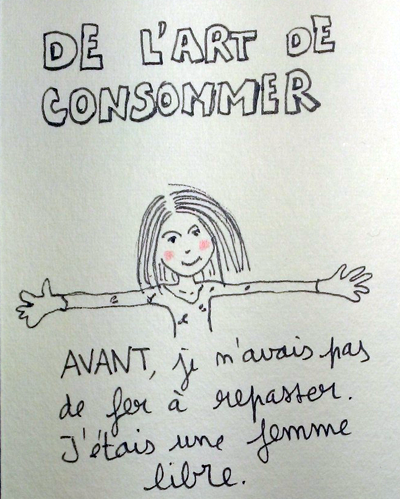 DE L'ART DE
CONSOMMER
AVANT, je n'avais pas
de fer à repasser.
J'étais une femme
libre.